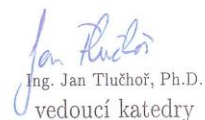 Jan Tlučhoř
Ing. Jan Tlučhoř, Ph.D.
vedoucí katedry